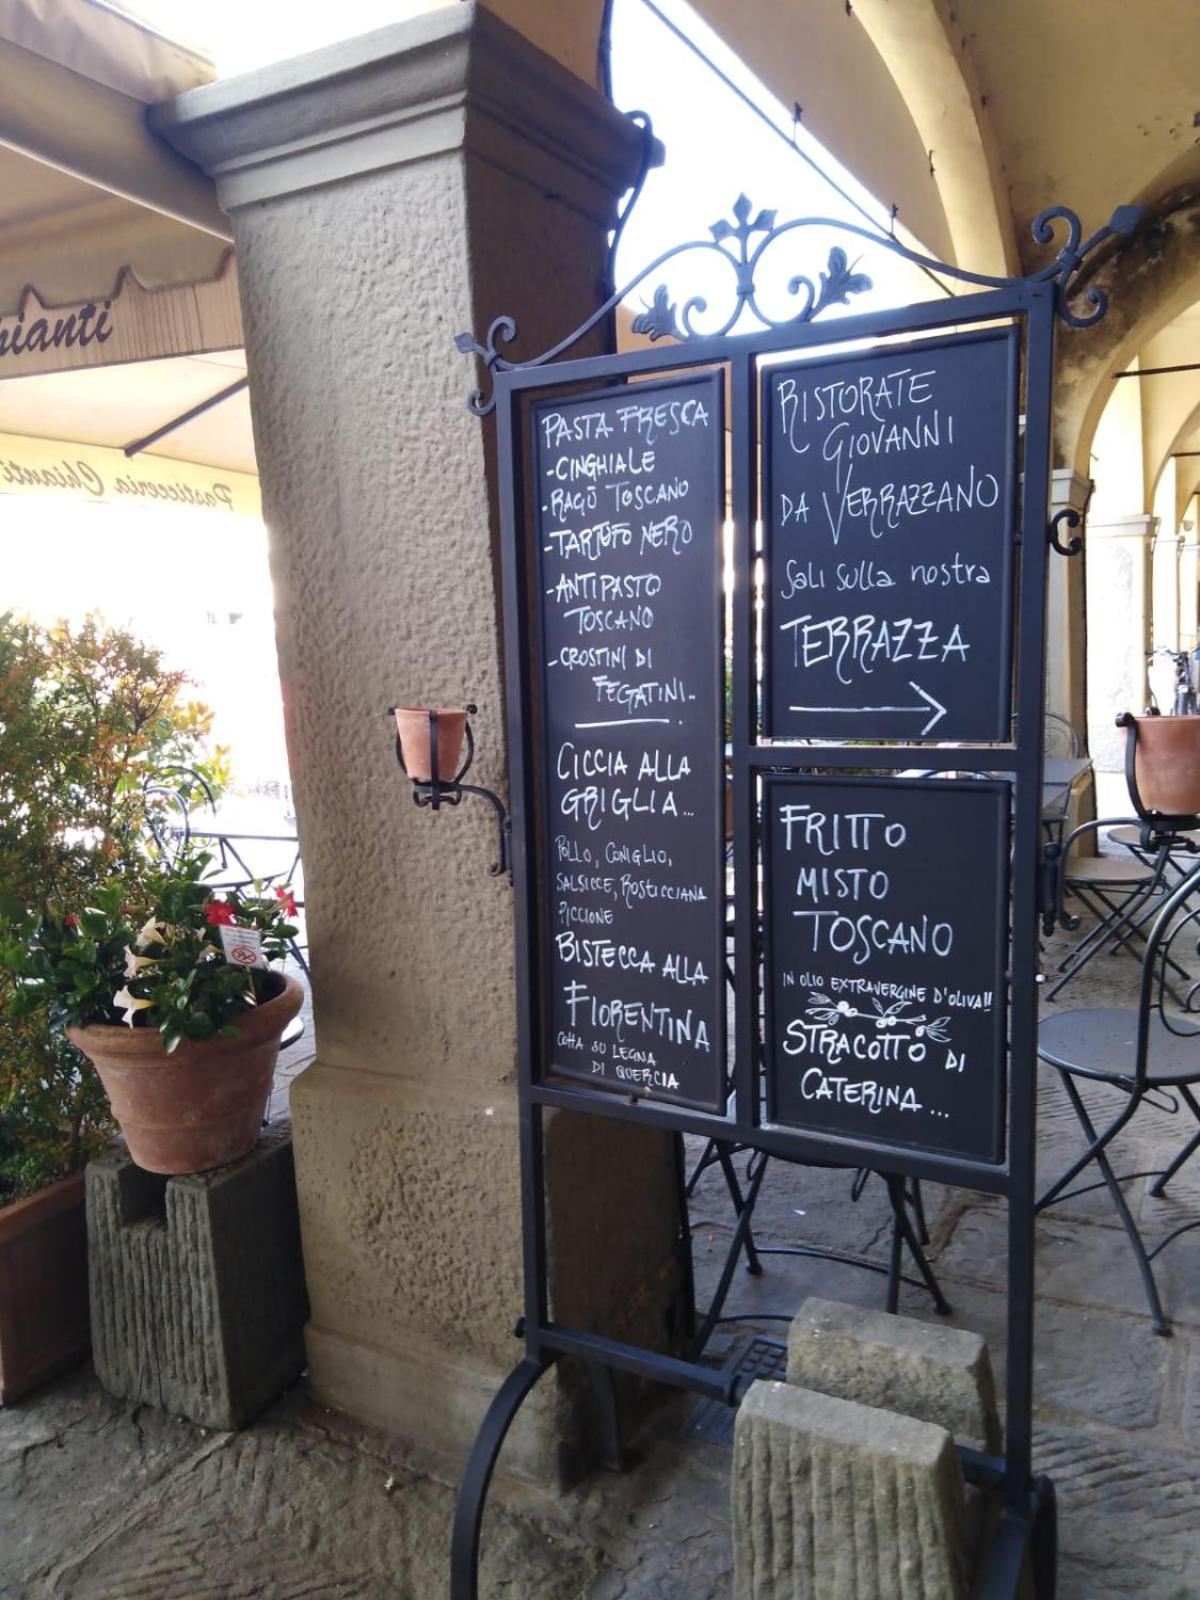 hianti
Pasticceria Chianti
PASTA FRESCA
-CINGHIALE
-RAGÙ TOSCANO
-TARTUFO NERO
-ANTIPASTO
TOSCANO
-CROSTINI DI
FEGATINI..
CICCIA ALLA
GRIGLIA...
POLLO, CONIGLIO,
SALSICCE, ROSTICCIANA
PICCIONE
BISTECCA ALLA
FIORENTINA
COTTA SU LEGNA
DI QUERCIA
RISTORATE
GIOVANNI
DA VERRAZZANO
Sali sulla nostra
TERRAZZA
FRITTO
MISTO
TOSCANO
IN OLIO EXTRAVERGINE D'OLIVA!!
STRACOTTO DI
CATERINA...